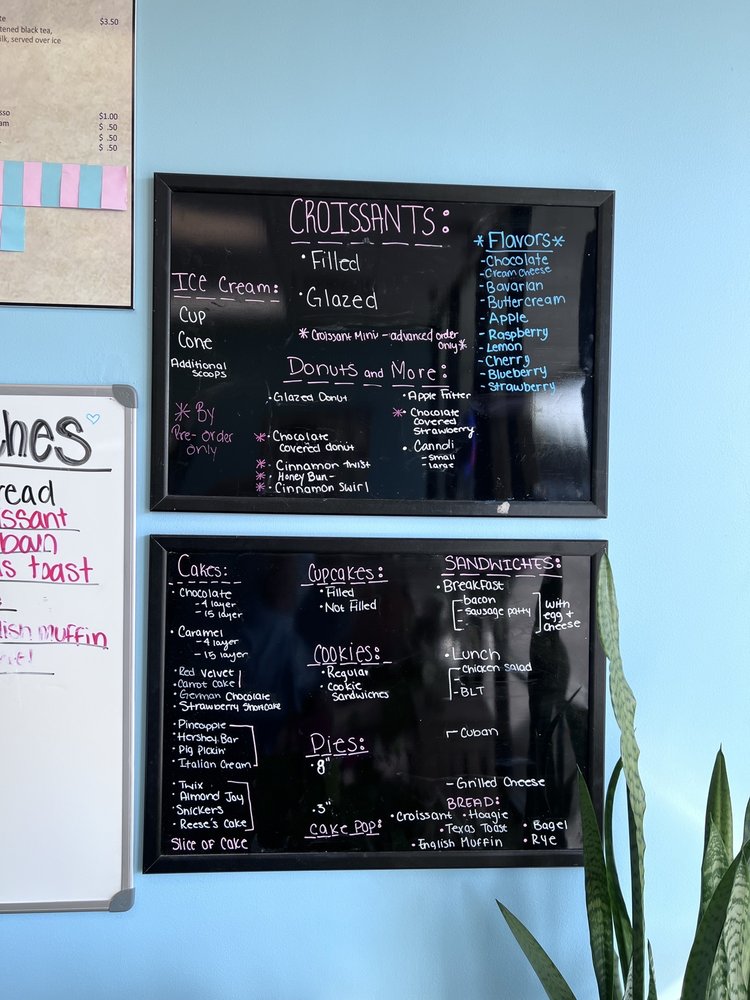 $3.50
tened black tea,
ilk, served over ice
$1.00
$ .50
$ .50
$ .50
ches
read
issant
s toast
lish muffin
CROISSANTS:
• Filled
• Glazed
* Croissant Mini - advanced order
only *
* Flavors *
- Chocolate
- Cream Cheese
- Bavarian
- Buttercream
- Apple
- Raspberry
- Lemon
- Cherry
- Blueberry
- Strawberry
Ice Cream:
Cup
Cone
Additional
scoops
* By
Pre-order
only
Donuts and More:
• Glazed Donut
* • Chocolate
covered donut
* • Cinnamon twist
* • Honey Bun -
* • Cinnamon Swirl
• Apple Fritter
* • Chocolate
covered
Strawberry
• Cannoli
- small
- large
Cakes:
• Chocolate
- 4 layer
- 15 layer
• Caramel
- 4 layer
- 15 layer
• Red Velvet
• Carrot Cake
• German Chocolate
• Strawberry Shortcake
• Pineapple
• Hershey Bar
• Pig Pickin'
• Italian Cream
• Twix
• Almond Joy
• Snickers
• Reese's Cake
Slice of Cake
Cupcakes:
• Filled
• Not Filled
Cookies:
• Regular
• Cookie
Sandwiches
Pies:
• 8"
• 3"
Cake Pop:
SANDWICHES:
• Breakfast
- bacon
- sausage patty
with
egg +
cheese
• Lunch
- Chicken Salad
- BLT
- Cuban
- Grilled Cheese
BREAD:
• Croissant • Hoagie
• Texas Toast • Bagel
• English Muffin • Rye